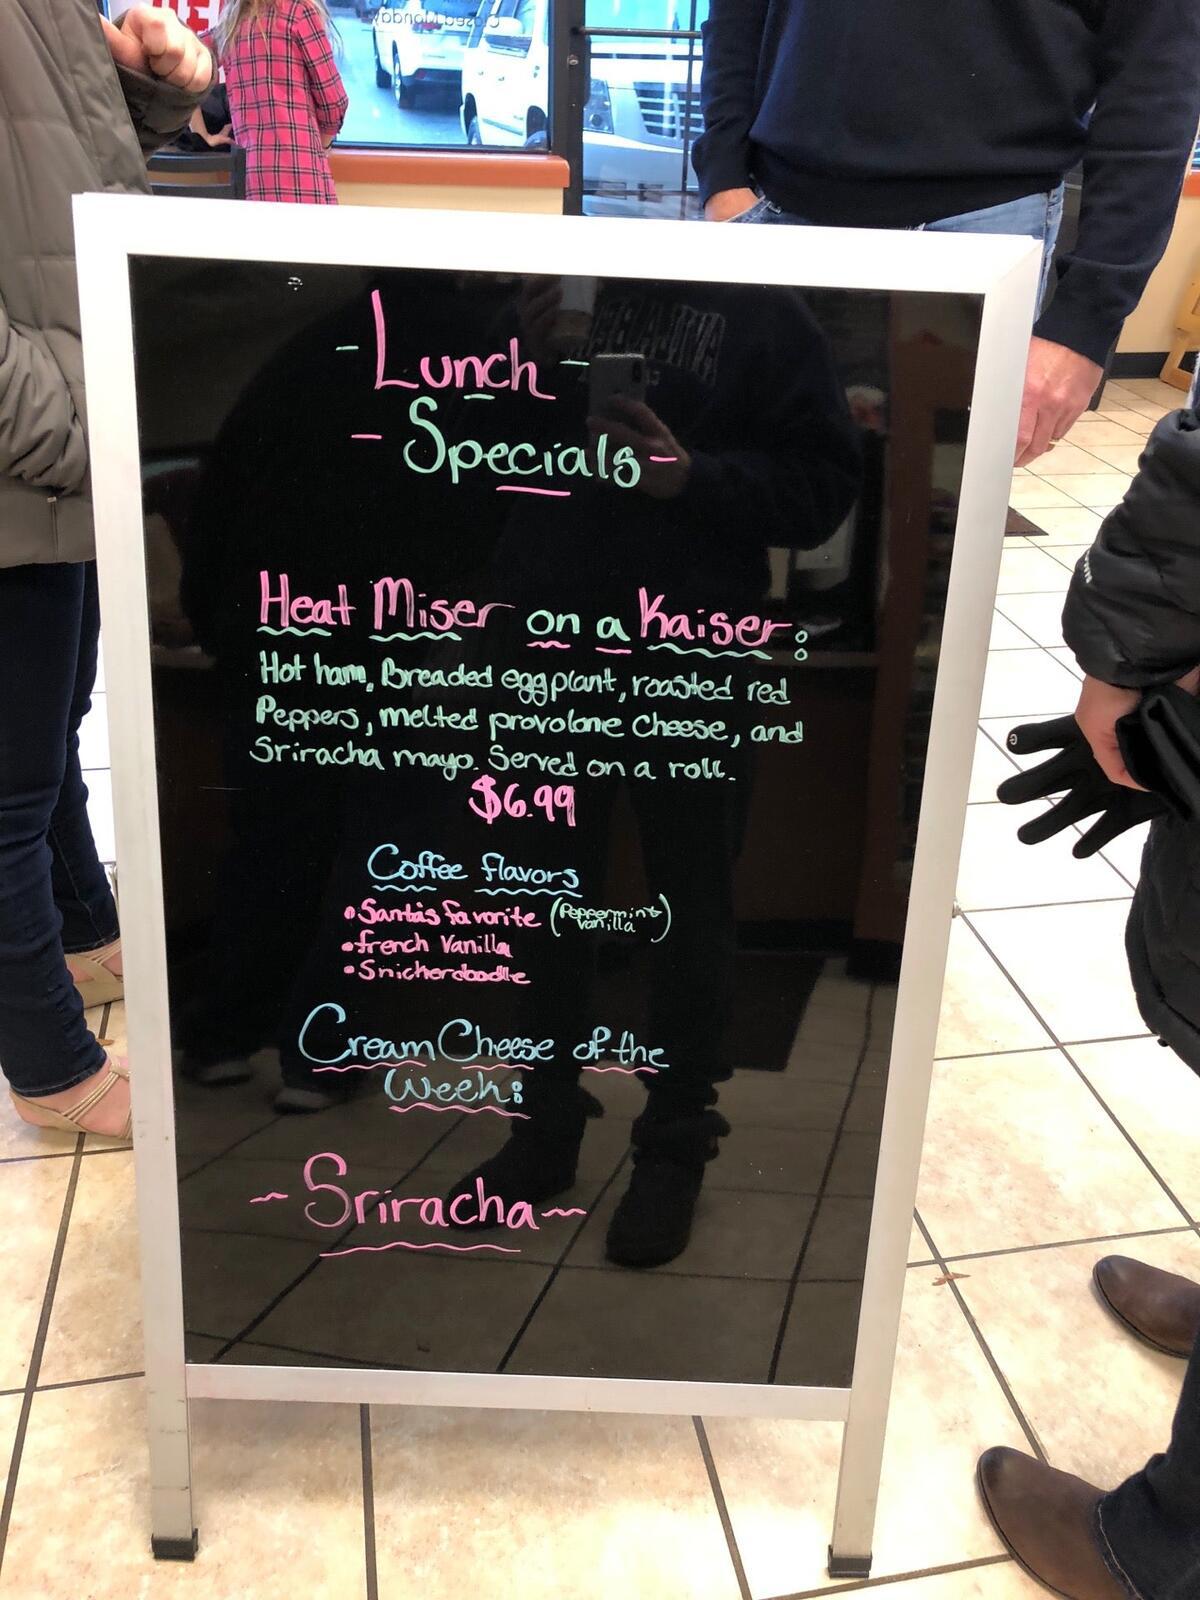 Closed Monday
- Lunch -
- Specials -
Heat Miser on a Kaiser:
Hot ham, Breaded eggplant, roasted red
Peppers, melted provolone cheese, and
Sriracha mayo. Served on a roll.
$6.99
Coffee flavors
• Santa's favorite (Peppermint
vanilla)
• french Vanilla
• Snickerdoodle
Cream Cheese of the
Week:
~ Sriracha ~